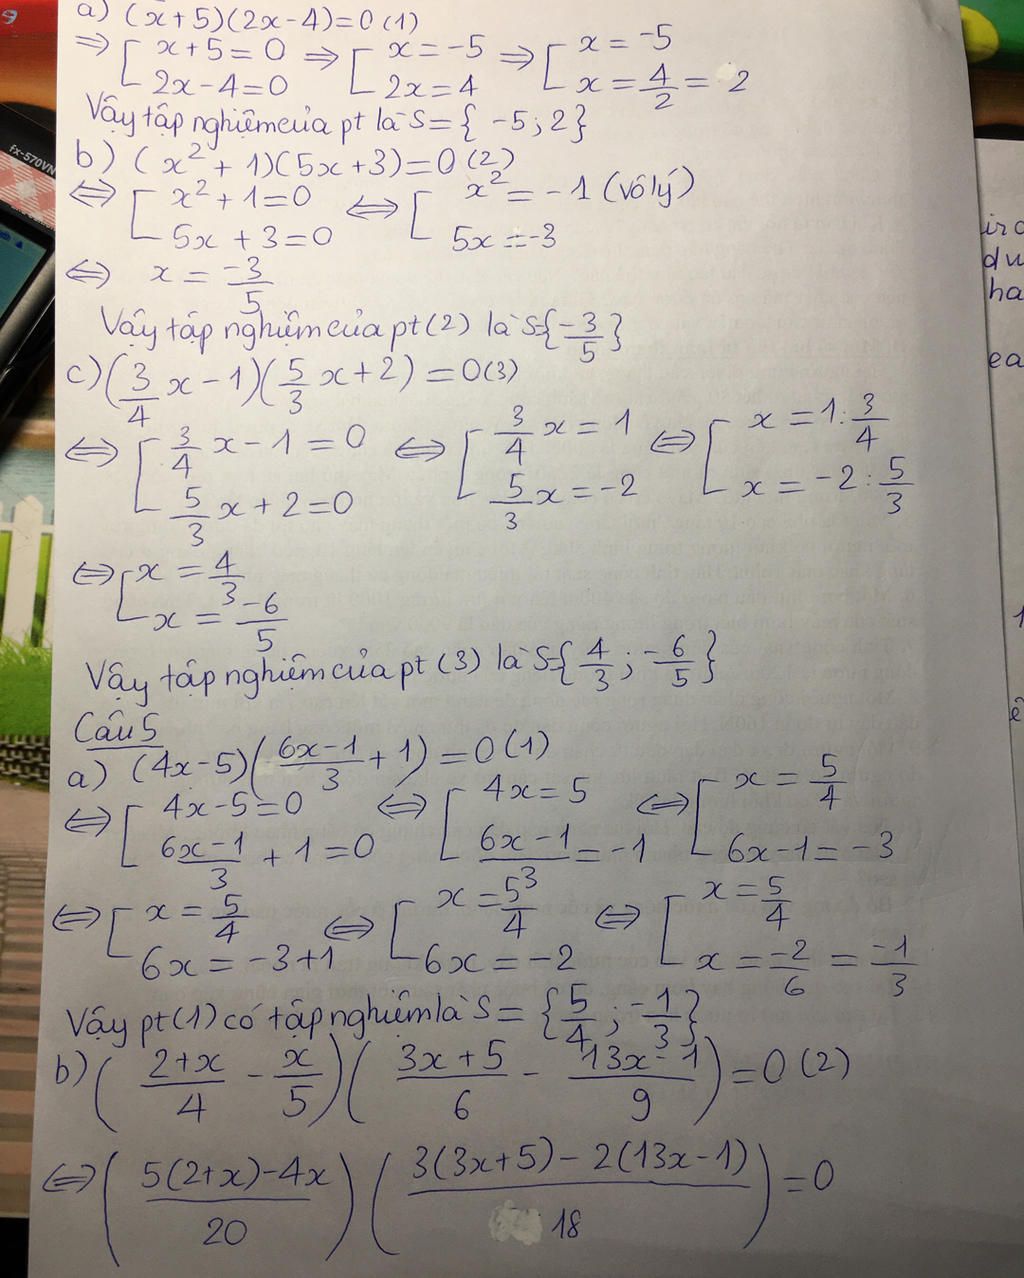 a) (x+5)(2x-4)=0 (1)
⇒ [ x+5=0 ⇒ [ x=-5 ⇒ [ x=-5
2x-4=0 2x=4 x=4/2=2
Vậy tập nghiệm của pt là S={ -5; 2}
b) (x²+1)(5x+3)=0 (2)
⇔ [ x²+1=0 ⇔ [ x²=-1 (vô lý)
5x+3=0 5x=-3
⇔ x=-3/5
Vậy tập nghiệm của pt (2) là S{-3/5}
c) (3/4x-1)(5/3x+2)=0(3)
⇔ [ 3/4x-1=0 ⇔ [ 3/4x=1 ⇔ [ x=1:3/4
5/3x+2=0 5/3x=-2 x=-2:5/3
⇔ [ x=4/3
x=-6/5
Vậy tập nghiệm của pt (3) là S={4/3; -6/5}
Câu 5
a) (4x-5)(6x-1/3+1)=0 (1)
⇔ [ 4x-5=0 ⇔ [ 4x=5 ⇔ [ x=5/4
6x-1/3+1=0 6x-1/3=-1 6x-1=-3
⇔ [ x=5/4 ⇔ [ x=5/4 ⇔ [ x=5/4
6x=-3+1 6x=-2 x=-2/6=-1/3
Vậy pt (1) có tập nghiệm là S={5/4; -1/3}
b) (2+x/4-x/5)(3x+5/6-13x-1/9)=0 (2)
⇔ (5(2+x)-4x/20)(3(3x+5)-2(13x-1)/18)=0
fx-570VN
ha
ea